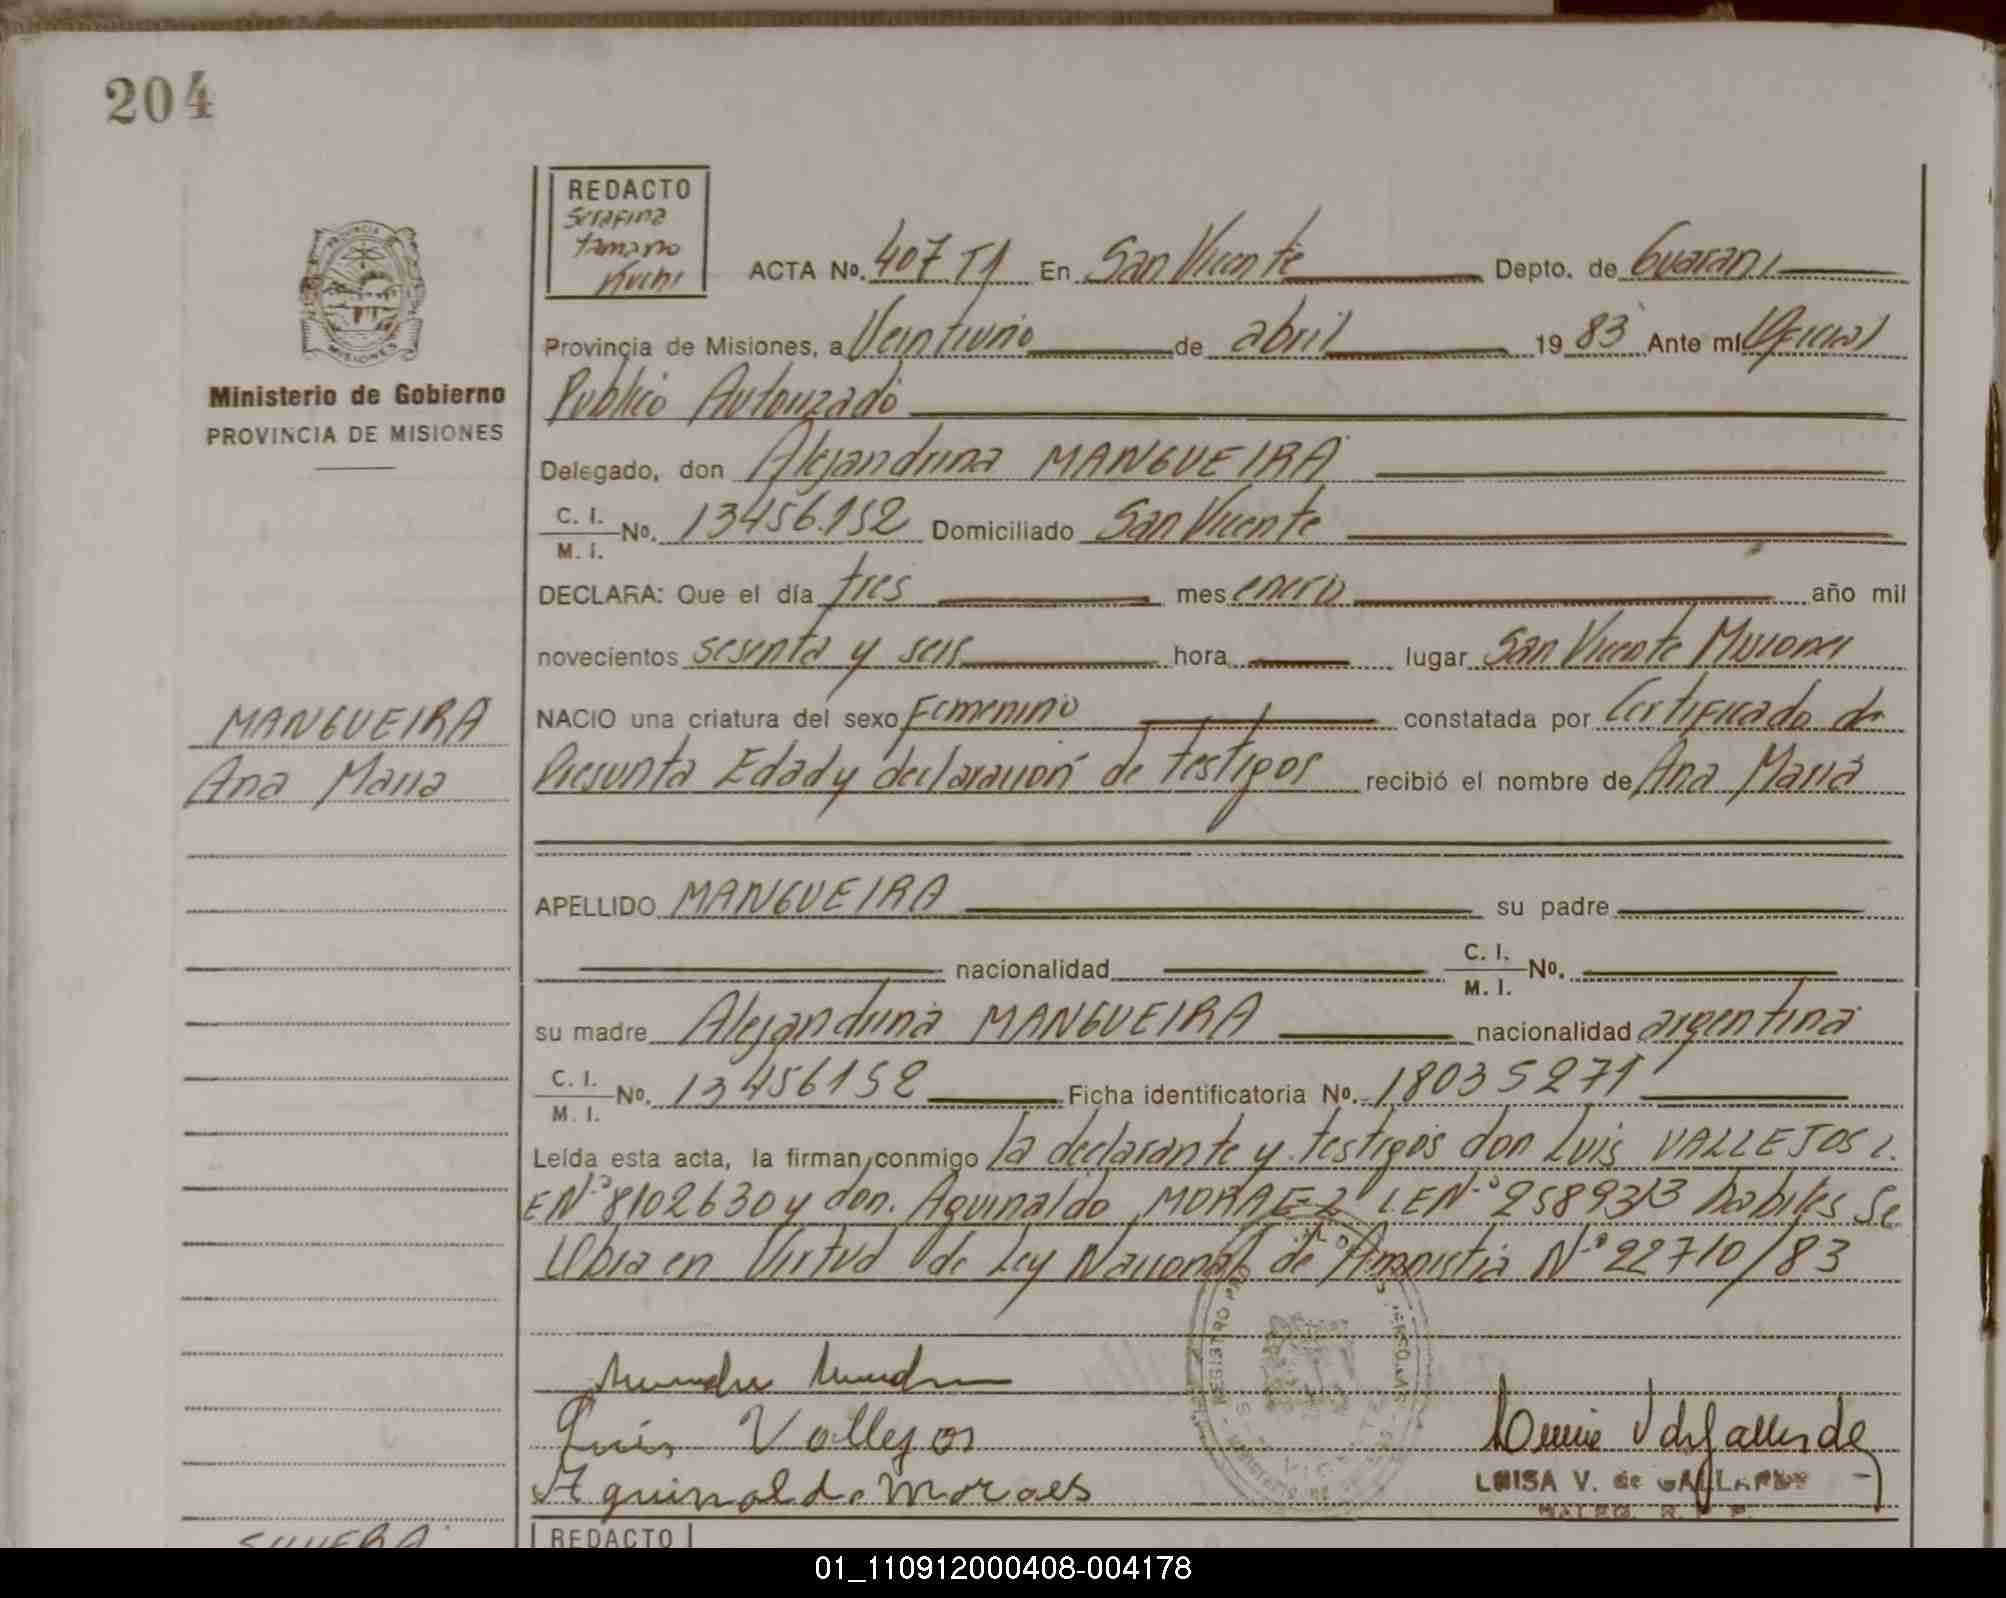 204
REDACTO
Serafina
Kuchi
ACTA No. 407 T1 En San Vicente Depto. de Guaraní
Provincia de Misiones, a Veintiuno de abril 1983 Ante mi Oficial
Publico Autorizado
Ministerio de Gobierno
PROVINCIA DE MISIONES
Delegado, don Alejandrina MANGUEIRA
C. I.
M. I. No. 13456.152 Domiciliado San Vicente
DECLARA: Que el día tres mes enero año mil
novecientos sesenta y seis hora lugar San Vicente Misiones
MANGUEIRA
Ana Maria
NACIO una criatura del sexo Femenino constatada por Certificado de
Presunta Edad y declaración de testigos recibió el nombre de Ana María
APELLIDO MANGUEIRA su padre
nacionalidad C. I.
M. I. No.
su madre Alejandrina MANGUEIRA nacionalidad argentina
C. I.
M. I. No. 13456152 Ficha identificatoria No. 18035271
Leída esta acta, la firman conmigo la declarante y testigos don Luis VALLEJOS L.
E Nº 8102630 y don. Aguinaldo MORAEZ LE Nº 2589313 habiles Se
labra en Virtud de Ley Nacional de Amnistia Nº 22710/83
Luis Vallejos
Aguinaldo Moraes
LUISA V. de GALLARDO
SILVERA
REDACTO
01_110912000408-004178